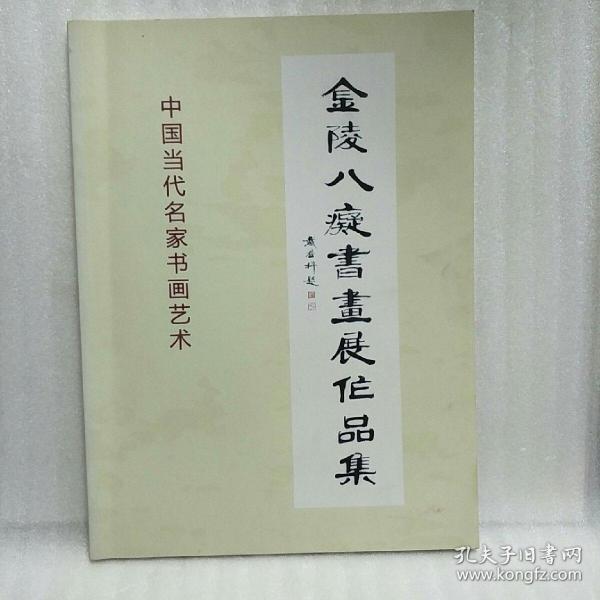 金陵八癡書畫展作品集
中国当代名家书画艺术
孔夫子旧书网
www.kongfz.com